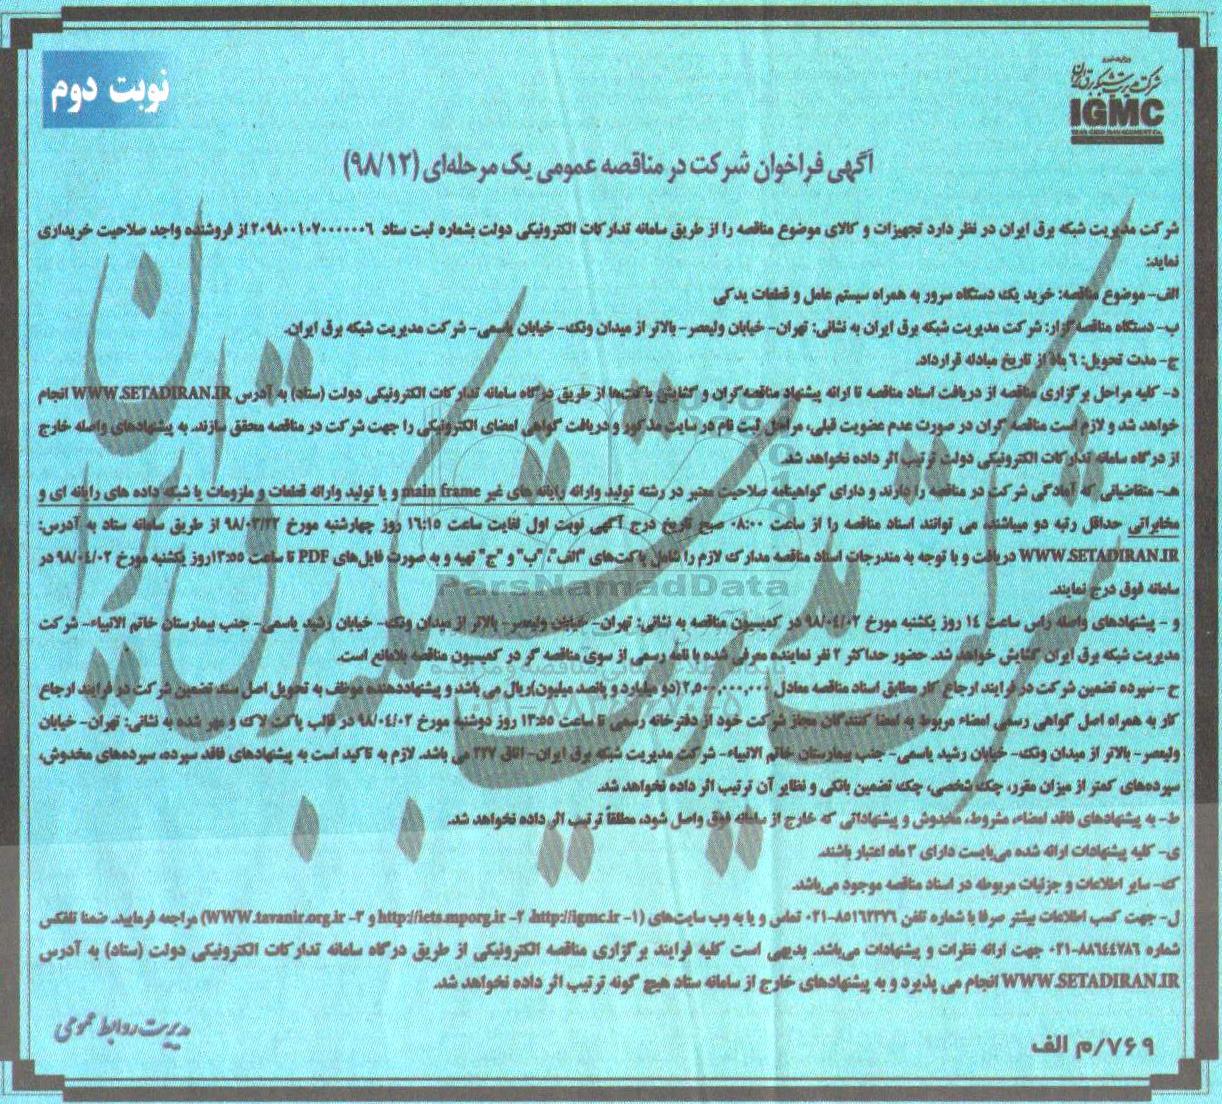 نوبت دوم
شرکت مدیریت شبکه برق ایران
IGMC
IRAN GRID MANAGEMENT Co.
آگهی فراخوان شرکت در مناقصه عمومی یک مرحله‌ای (۹۸/۱۲)
شرکت مدیریت شبکه برق ایران در نظر دارد تجهیزات و کالای موضوع مناقصه را از طریق سامانه تدارکات الکترونیکی دولت بشماره ثبت ستاد ۲۰۹۸۰۰۱۰۷۰۰۰۰۰۰۶ از فروشنده واجد صلاحیت خریداری
نماید:
الف- موضوع مناقصه: خرید یک دستگاه سرور به همراه سیستم عامل و قطعات یدکی
ب- دستگاه مناقصه‌گزار: شرکت مدیریت شبکه برق ایران به نشانی: تهران- خیابان ولیعصر- بالاتر از میدان ونک- خیابان یاسمی- شرکت مدیریت شبکه برق ایران.
ج- مدت تحویل: ۶ ماه از تاریخ مبادله قرارداد.
د- کلیه مراحل برگزاری مناقصه از دریافت اسناد مناقصه تا ارائه پیشنهاد مناقصه‌گران و گشایش پاکت‌ها از طریق درگاه سامانه تدارکات الکترونیکی دولت (ستاد) به آدرس WWW.SETADIRAN.IR انجام
خواهد شد و لازم است مناقصه گران در صورت عدم عضویت قبلی، مراحل ثبت نام در سایت مذکور و دریافت گواهی امضای الکترونیکی را جهت شرکت در مناقصه محقق سازند. به پیشنهادهای واصله خارج
از درگاه سامانه تدارکات الکترونیکی دولت ترتیب اثر داده نخواهد شد.
هـ- متقاضیانی که آمادگی شرکت در مناقصه را دارند و دارای گواهینامه صلاحیت معتبر در رشته تولید وارائه رایانه های غیر main frame و یا تولید وارائه قطعات و ملزومات یا شبکه داده های رایانه ای و
مخابراتی حداقل رتبه دو میباشند، می توانند اسناد مناقصه را از ساعت ۰۸:۰۰ صبح تاریخ درج آگهی نوبت اول لغایت ساعت ۱۶:۱۵ روز چهارشنبه مورخ ۹۸/۰۳/۲۲ از طریق سامانه ستاد به آدرس:
WWW.SETADIRAN.IR دریافت و با توجه به مندرجات اسناد مناقصه مدارک لازم را شامل پاکت‌های "الف"، "ب" و "ج" تهیه و به صورت فایل‌های PDF تا ساعت ۱۳:۵۵ روز یکشنبه مورخ ۹۸/۰۴/۰۲ در
سامانه فوق درج نمایند.
و - پیشنهادهای واصله راس ساعت ۱۴ روز یکشنبه مورخ ۹۸/۰۴/۰۲ در کمیسیون مناقصه به نشانی: تهران- خیابان ولیعصر- بالاتر از میدان ونک- خیابان رشید یاسمی- جنب بیمارستان خاتم الانبیاء- شرکت
مدیریت شبکه برق ایران گشایش خواهد شد. حضور حداکثر ۲ نفر نماینده معرفی شده با نامه رسمی از سوی مناقصه گر در کمیسیون مناقصه بلامانع است.
ح- سپرده تضمین شرکت در فرایند ارجاع کار مطابق اسناد مناقصه معادل ۲,۵۰۰,۰۰۰,۰۰۰ (دو میلیارد و پانصد میلیون)ریال می باشد و پیشنهاددهنده موظف به تحویل اصل سند تضمین شرکت در فرایند ارجاع
کار به همراه اصل گواهی رسمی امضاء مربوط به امضا کنندگان مجاز شرکت خود از دفترخانه رسمی تا ساعت ۱۳:۵۵ روز دوشنبه مورخ ۹۸/۰۴/۰۲ در قالب پاکت لاک و مهر شده به نشانی: تهران- خیابان
ولیعصر- بالاتر از میدان ونک- خیابان رشید یاسمی- جنب بیمارستان خاتم الانبیاء- شرکت مدیریت شبکه برق ایران- اتاق ۲۲۷ می باشد. لازم به تاکید است به پیشنهادهای فاقد سپرده، سپرده‌های مخدوش،
سپرده‌های کمتر از میزان مقرر، چک شخصی، چک تضمین بانکی و نظایر آن ترتیب اثر داده نخواهد شد.
ط- به پیشنهادهای فاقد امضاء، مشروط، مخدوش و پیشنهاداتی که خارج از سامانه فوق واصل شود، مطلقاً ترتیب اثر داده نخواهد شد.
ی- کلیه پیشنهادات ارائه شده می‌بایست دارای ۳ ماه اعتبار باشند.
ک- سایر اطلاعات و جزئیات مربوطه در اسناد مناقصه موجود می‌باشد.
ل- جهت کسب اطلاعات بیشتر صرفا با شماره تلفن ۸۵۱۶۲۳۷۶-۰۲۱ تماس و یا به وب سایت‌های (۱- http://igmc.ir، ۲- http://iets.mporg.ir و ۳- WWW.tavanir.org.ir) مراجعه فرمایید. ضمنا تلفکس
شماره ۸۸۶۴۴۷۸۶-۰۲۱ جهت ارائه نظرات و پیشنهادات می‌باشد. بدیهی است کلیه فرایند برگزاری مناقصه الکترونیکی از طریق درگاه سامانه تدارکات الکترونیکی دولت (ستاد) به آدرس
WWW.SETADIRAN.IR انجام می پذیرد و به پیشنهادهای خارج از سامانه ستاد هیچ گونه ترتیب اثر داده نخواهد شد.
مدیریت روابط عمومی
۷۶۹/م الف
ParsNamadData